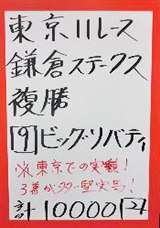 東京11レース
鎌倉ステークス
複勝
9 ビック・リバティ
※東京での実績!
3着ベスター堅実局!
計10000円